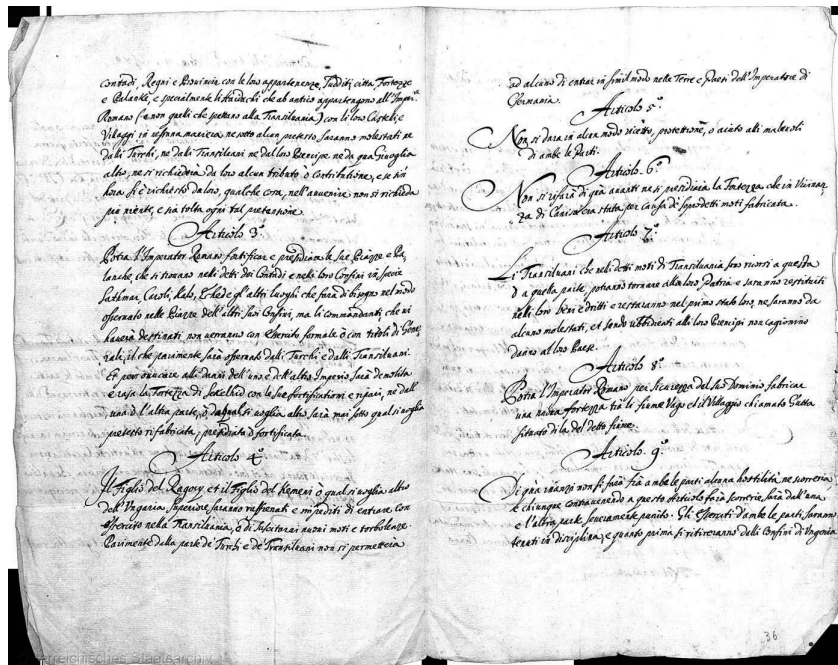 Contadi, Regni e Provincie con le loro appartenenze, Sudditi, citta, Fortezze
e Palanke, e specialmente li Haiduchi che ab antico appartengono all'Imper.r
Romano (e non quelli che spettano alla Transilvania) con li loro Castelli, e
Villaggi in nessuna maniera ne sotto alcun pretesto saranno molestati ne
dalli Turchi, ne dalli Transilvani ne dal loro Prencipe ne da qual si voglia
altro, ne si richiederà da loro alcun tributo ò contributione, e se sin
hora si è richiesto da loro, qualche cosa, nell'auuenire non si richieda
più niente, e sia tolta ogni tal pretensione.
Articolo 3.º
Potrà l'Imperator Romano fortificar e presidiare le sue Piazze e Pa,
lanche, che si trouano nelli detti doi Contadi e nelli loro Confini in specie
Sathmar, Caroli, Kalo, Eched e gl'altri luoghi che farà di bisogno nel modo
osseruato nelle Piazze dell'altri suoi Confini, ma li commandanti che vi
hauerà destinati non uerranno con Esercito formale ò con titoli di Gene
rale, il che parimente sarà osseruato dalli Turchi e dalli Transiluani.
Et per ouuiare alli danni dell'uno e dell'altro Imperio sarà demolita
e rasa la Fortezza di Sekelhid con le sue fortificationi e ripari, ne dall'
una ò l'altra parte, ò da qual si uoglia altro sarà mai sotto qual si uoglia
pretesto rifabricata, presidiata ò fortificata.
Articolo 4.º
Il Figlio del Ragozy et il Figlio del Kemeni ò qual si uoglia altro
dell'Ungaria Superiore saranno raffrenati e impediti di entrare con
esercito nella Transiluania, ò di suscitarui nuoui moti e torbolenze
Parimente dalla parte de' Turchi e de' Transiluani non si permetterà
ad alcuno di entrar in simil modo nelle Terre e Paesi dell'Imperatore di
Germania.
Articolo 5.º
Non si darà in alcun modo ricetto, protettione, ò aiuto alli maleuoli
di ambe le Parti.
Articolo 6.º
Non si rifarà di quà auanti ne si presidiarà la Fortezza che in Vicinan
za di Canisa era stata per causa de' sopradetti moti fabricata.
Articolo 7.º
Li Transiluani che nelli detti moti di Transiluania sono ricorsi a questa
ò a quella parte, potranno tornare alla loro Patria e saranno restituiti
nelli loro beni e dritti e restaranno nel primo stato loro, ne saranno da
alcuno molestati, et sendo ubbidienti alli loro Prencipi non cagionino
danno al loro Paese.
Articolo 8.º
Potrà l'Imperator Romano per sicurezza del suo Dominio fabricar
una nuoua fortezza trà il fiume Vago et il Villaggio chiamato Gutta
situato di la del detto fiume.
Articolo 9.º
Di quà inanzi non si farà frà ambe le parti alcuna hostilità ne scorreria
e chiunque contrauenendo a questo Articolo farà scorreria sarà dall'una
e l'altra parte seueramente punito. Gli Eserciti d'ambe le parti saranno
tenuti in disciplina, e quanto prima si ritireranno dalli Confini di Ungaria
36
Österreichisches Staatsarchiv